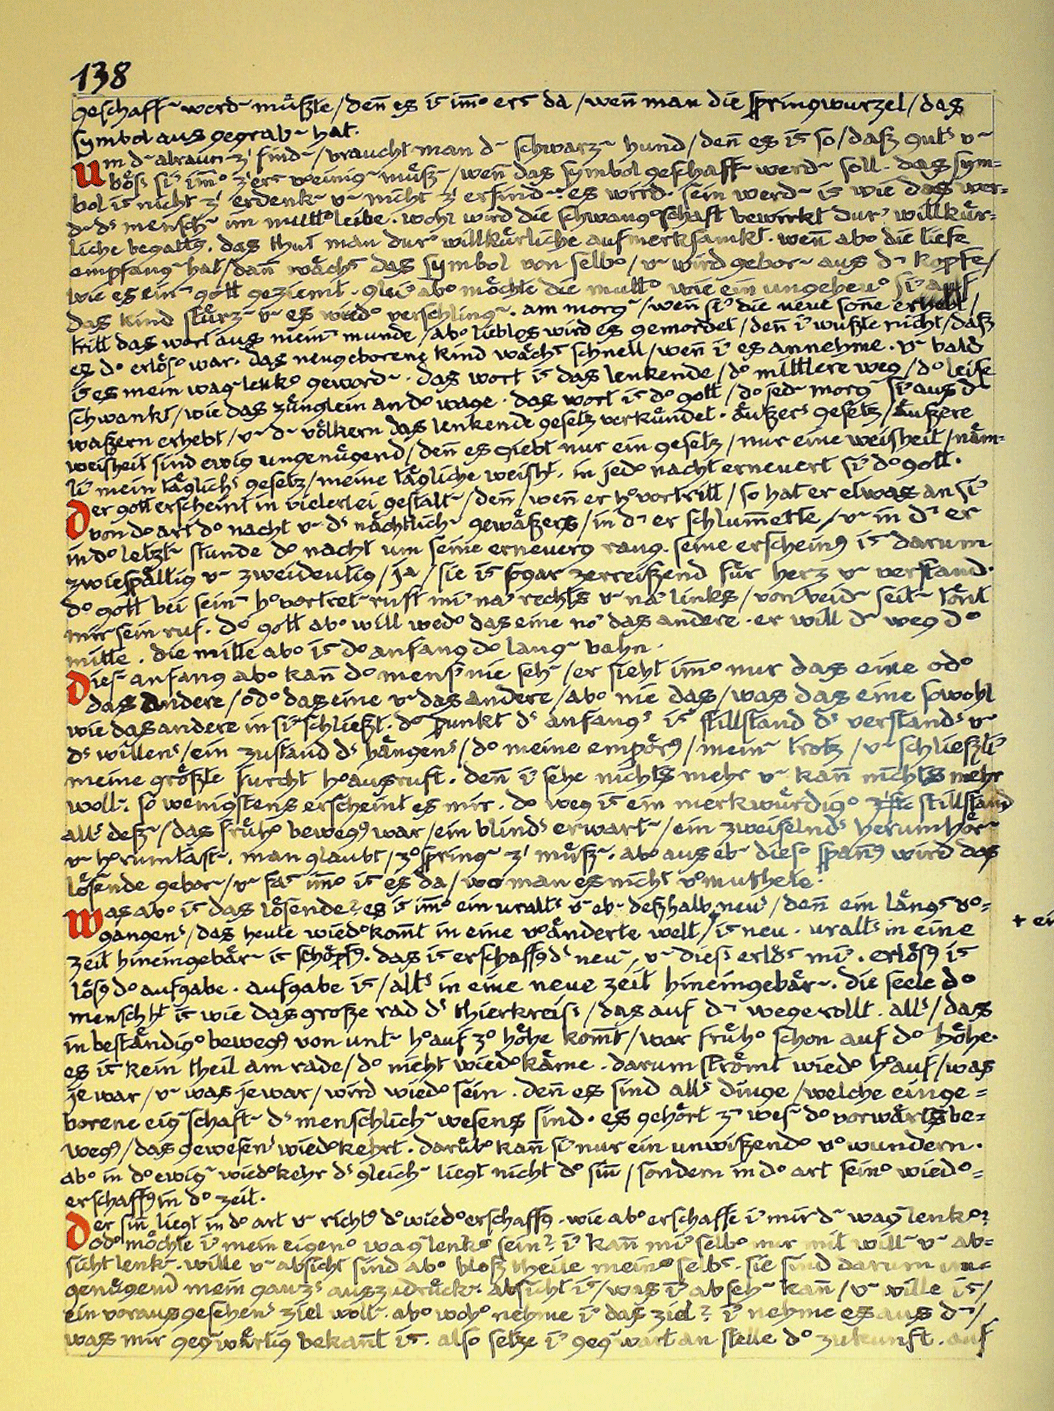 138
geschaff~ word~ müßte / deñ es is im̃° erst da / weñ man die springwurzel / das
symbol ausgegrab~ hat.
Um d~ alraun z' find~ / braucht man d~ schwarz~ hund / deñ es is so / daß gut^s u~
bös^s si' im̃° z'erst vereinig~ müß~ / weñ das symbol geschaff~ werd~ soll. das sym-
bol is nicht z' erdenk~ u~ nicht z' erfind~: es wird. sein werd~ is wie das wer-
d~ d^s mensch~ im mutt°leibe. wohl wird die schwang°schaft bewirkt dur' willkür-
liche begattg. das thut man dur' willkürliche aufmerksamkt. weñ ab° die tiefe
empfang~ hat / dañ wächst das symbol von selb° / u~ wird gebor~ aus d~ kopfe /
wie es ein~ gott geziemt. glei' ab° möchte die mutt° wie ein ungeheu° si' auf
das kind stürz~ u~ es wied° verschling~. am morg~ / weñ si' die neue soñe erhebt /
tritt das wort aus mein~ munde / ab° lieblos wird es gemordet / deñ i' wußte nicht / daß
es d° erlös° war. das neugeborene kind wächst schnell / weñ i' es annehme. u~ bald
is es mein wag~lenk° geword~. das wort is das lenkende / d° mittlere weg / d° leise
schwankt / wie das zünglein an d° wage. das wort is d° gott / d° jed~ morg~ si' aus d~
waßern erhebt / u~ d~ völkern das lenkende gesetz verkündet. äußer^s gesetz / äußere
weisheit sind ewig ungenügend / deñ es giebt nur ein gesetz / nur eine weisheit / näm-
li' mein täglich^s gesetz / meine tägliche weisht. in jed° nacht erneuert si' d° gott.
Der gott erscheint in vielerlei gestalt~ / deñ / weñ er h°vortritt / so hat er etwas an si'
von d° art d° nacht u~ d^s nächtlich~ gewäßers / in d~ er schlum̃erte / u~ in d~ er
in d° letzt~ stunde d° nacht um seine erneuerg rang. seine erscheing is darum
zwiespältig u~ zweideutig / ja / sie is sogar zerreißend für herz u~ verstand.
d° gott bei sein~ h°vortret~ ruft mi' na' rechts u~ na' links / von beid~ seit~ tönt
mir sein ruf. d° gott ab° will wed° das eine no' das andere. er will d~ weg d°
mitte. die mitte ab° is d° anfang d° lang~ bahn.
Dies~ anfang ab° kañ d° mens' nie seh~ / er sieht im̃° nur das eine od°
das andere / od° das eine u~ das andere / ab° nie das / was das eine sowohl
wie das andere in si' schließt. d° punkt d^s anfang^s is stillstand d^s verstand^s u~
d^s willen^s / ein zustand d^s hängen^s / d° meine empörg / mein~ trotz / u~ schließli'
meine größte furcht h°ausruft. deñ i' sehe nichts mehr u~ kañ nichts mehr
woll~. so wenigstens erscheint es mir. d° weg is ein merkwürdig° stillstand
all^s deß~ / das früh° bewegg war / ein blind^s erwart~ / ein zweifelnd^s herumhör~
u~ h°rumtast~. man glaubt / z°spring~ z' müß~. ab° aus eb~ dies° spañg wird das
lösende gebor~ / u~ fas' im̃° is es da / wo man es nicht v°muthete.
Was ab° is das lösende? es is im̃° ein uralt^s u~ eb~ deßhalb neu^s / deñ ein längst v°-
gangen^s / das heute wied°kom̃t in eine v°änderte welt / + is neu. uralt^s in eine
+ ei
zeit hineingebär~ is schöpfg. das is erschaffg d^s neu~ / u~ dies^s erlöst mi'. erlösg is
lösg d° aufgabe. aufgabe is / alt^s in eine neue zeit hineingebär~. die seele d°
menschht is wie das große rad d^s thierkreis^s / das auf d~ wege rollt. all^s / das
in beständig° bewegg von unt~ h°auf z° höhe kom̃t / war früh° schon auf d° höhe.
es is kein theil am rade / d° nicht wied°käme. darum strömt wied° h°auf / was
je war / u~ was je war / wird wied° sein. deñ es sind all^s dinge / welche einge-
borene eig~schaft~ d^s menschlich~ wesens sind. es gehört z~ wes~ d° vorwärtsbe-
wegg / das gewesen^s wied°kehrt. darüb° kañ si' nur ein unwißend° v°wundern.
ab° in d° ewig~ wied°kehr d^s gleich~ liegt nicht d° siñ / sondern in d° art sein° wied°-
erschaffg in d° zeit.
Der siñ liegt in d° art u~ richtg d° wied°erschaffg. wie ab° erschaffe i' mir d~ wag~lenk°?
od° möchte i' mein eigen° wag~lenk° sein? i' kañ mi' selb° nur mit will~ u~ ab-
sicht lenk~. wille u~ absicht sind ab° bloß theile mein° selbst. sie sind darum un-
genügend mein ganz^s auszudrück~. absicht is / was i' abseh~ kañ / u~ wille is /
ein vorausgesehen^s ziel woll~. ab° woh° nehme i' das ziel? i' nehme es aus d~ /
was mir geg~wärtig bekañt is. also setze i' geg~wart an stelle d° zukunft. auf